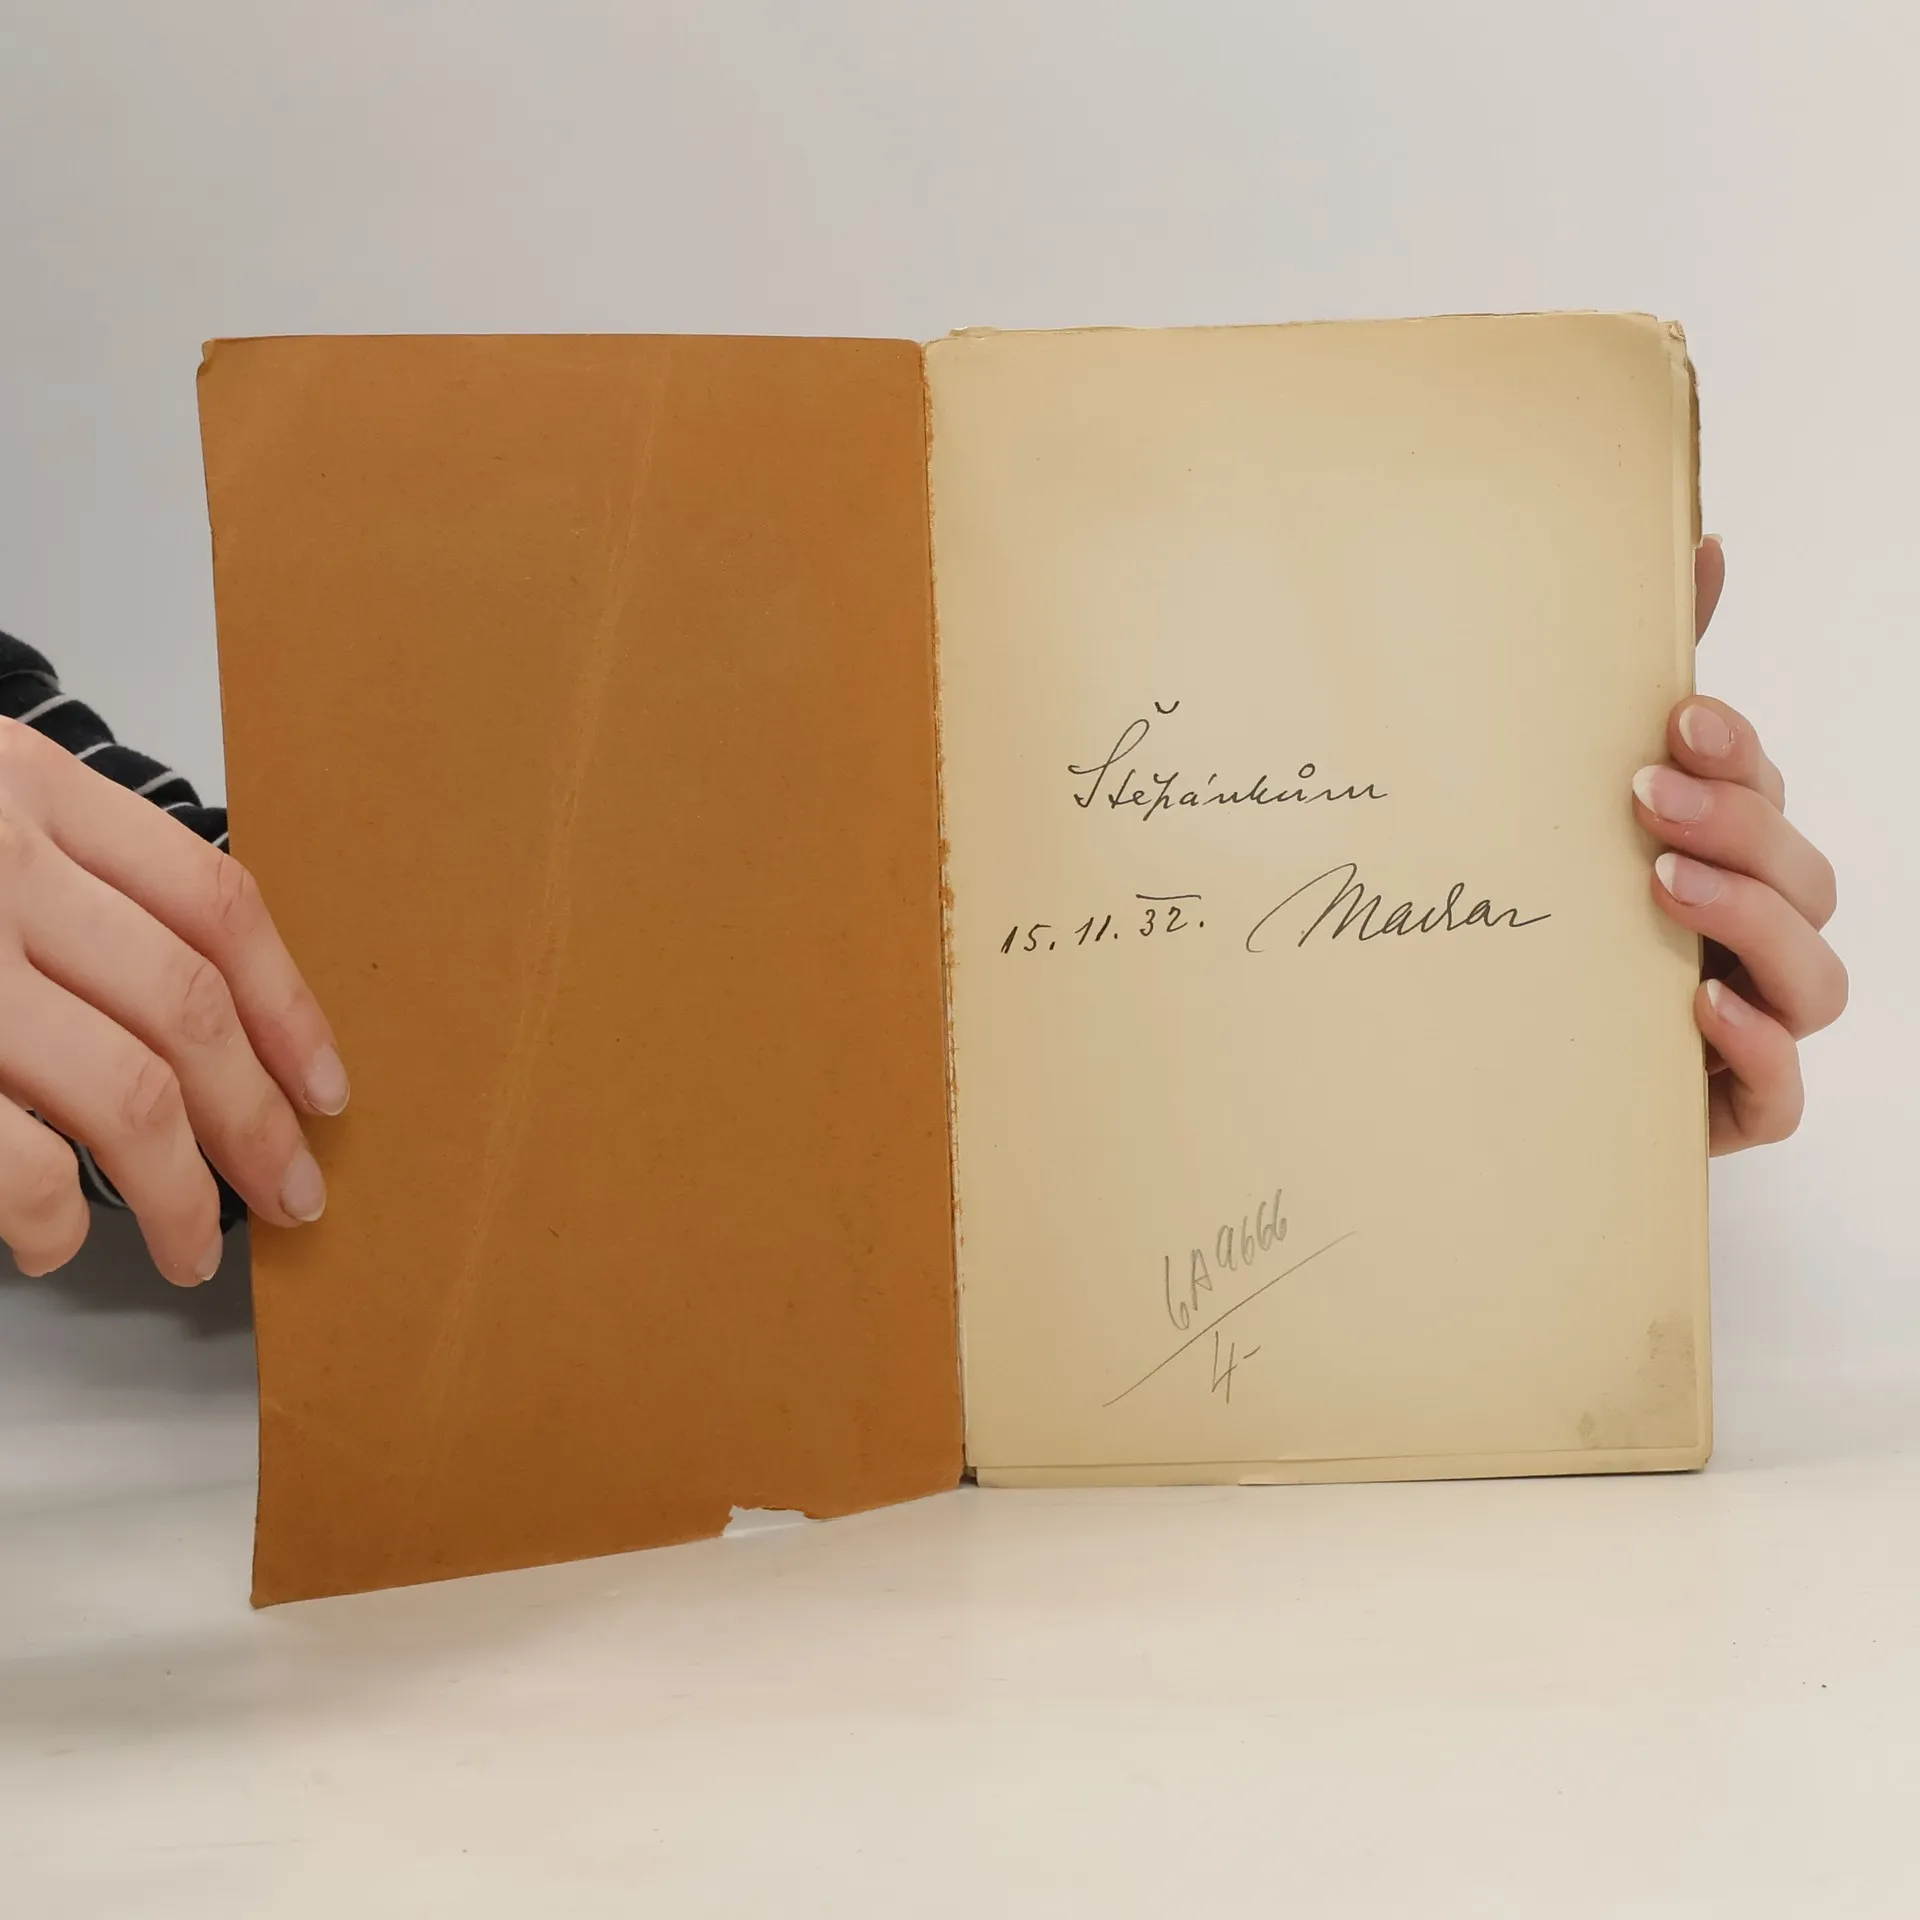 Štěpánkům
15. 11. 32. Machar
6A9666
4-